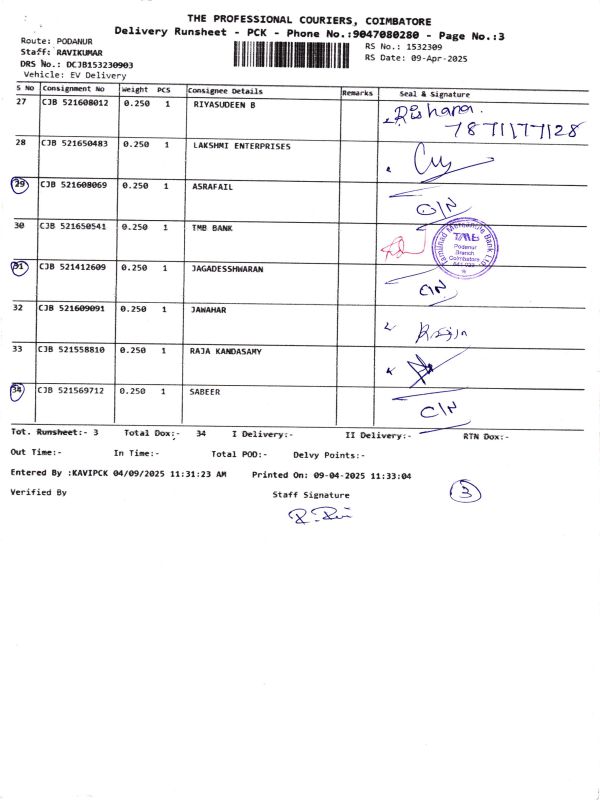 THE PROFESSIONAL COURIERS, COIMBATORE
Delivery Runsheet - PCK - Phone No.:9047080280 - Page No.:3
Route: PODANUR
RS No.: 1532309
Staff: RAVIKUMAR
RS Date: 09-Apr-2025
DRS No.: DCJB153230903
Vehicle: EV Delivery
S No Consignment No Weight PCS Consignee Details Remarks Seal & Signature
27 CJB 521608012 0.250 1 RIYASUDEEN B Rishana.
7871177128
28 CJB 521650483 0.250 1 LAKSHMI ENTERPRISES
29 CJB 521608069 0.250 1 ASRAFAIL
30 CJB 521650541 0.250 1 TMB BANK
Tamilnad Mercantile Bank Ltd.
TMB
Podanur
Branch
Coimbatore
31 CJB 521412609 0.250 1 JAGADESSHWARAN
C/N
32 CJB 521609091 0.250 1 JAWAHAR
33 CJB 521558810 0.250 1 RAJA KANDASAMY
34 CJB 521569712 0.250 1 SABEER
C/N
Tot. Runsheet:- 3 Total Dox:- 34 I Delivery:- II Delivery:- RTN Dox:-
Out Time:- In Time:- Total POD:- Delvy Points:-
Entered By :KAVIPCK 04/09/2025 11:31:23 AM Printed On: 09-04-2025 11:33:04
Verified By Staff Signature 3